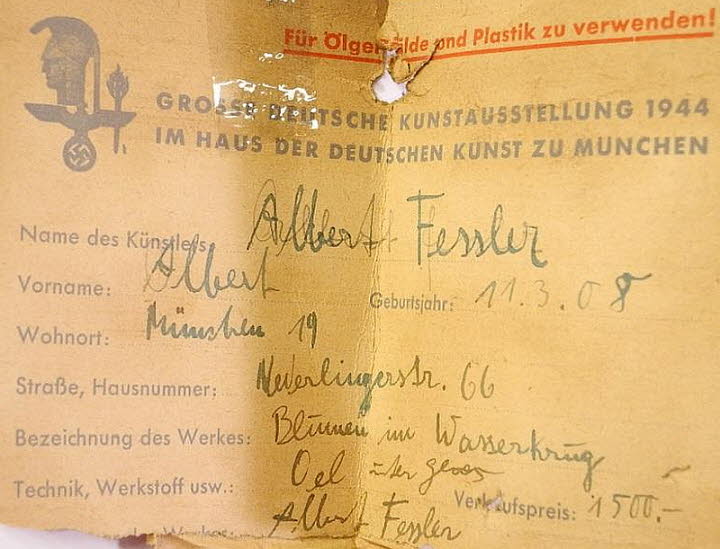 Für Ölgemälde und Plastik zu verwenden!
GROSSE DEUTSCHE KUNSTAUSSTELLUNG 1944
IM HAUS DER DEUTSCHEN KUNST ZU MÜNCHEN
Name des Künstlers: Albert Fessler
Vorname: Albert Geburtsjahr: 11.3.08
Wohnort: München 19
Straße, Hausnummer: Nederlingerstr. 66
Bezeichnung des Werkes: Blumen im Wasserkrug
Technik, Werkstoff usw.: Oel Verkaufspreis: 1500.-
Werkes: Albert Fessler